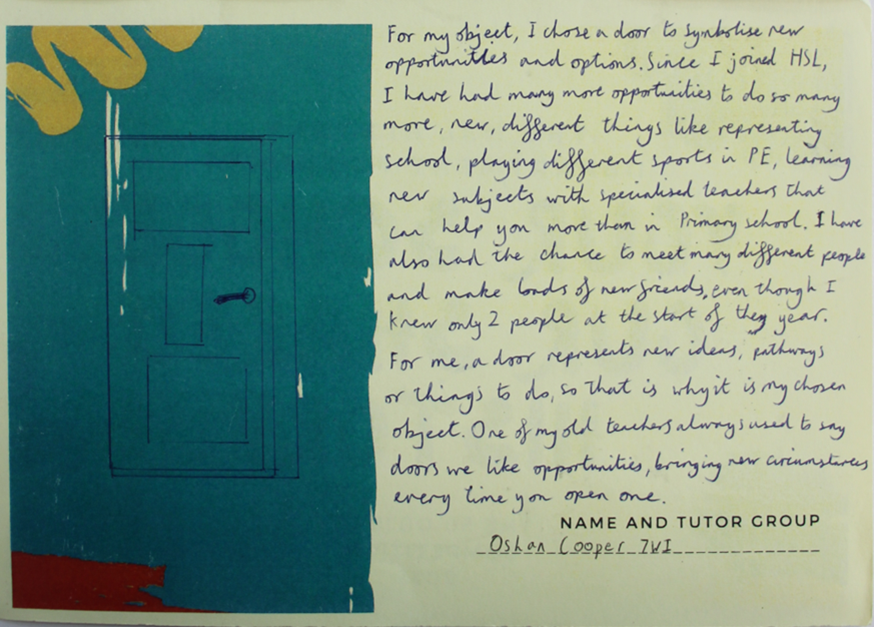 For my object, I chose a door to symbolise new
opportunities and options. Since I joined HSL,
I have had many more opportunities to do so many
more, new, different things like representing
school, playing different sports in PE, learning
new subjects with specialised teachers that
can help you more than in Primary school. I have
also had the chance to meet many different people
and make loads of new friends, even though I
knew only 2 people at the start of the year.
For me, a door represents new ideas, pathways
or things to do, so that is why it is my chosen
object. One of my old teachers always used to say
doors we like opportunities, bringing new circumstances
every time you open one.
NAME AND TUTOR GROUP
Oshan Cooper 7WI